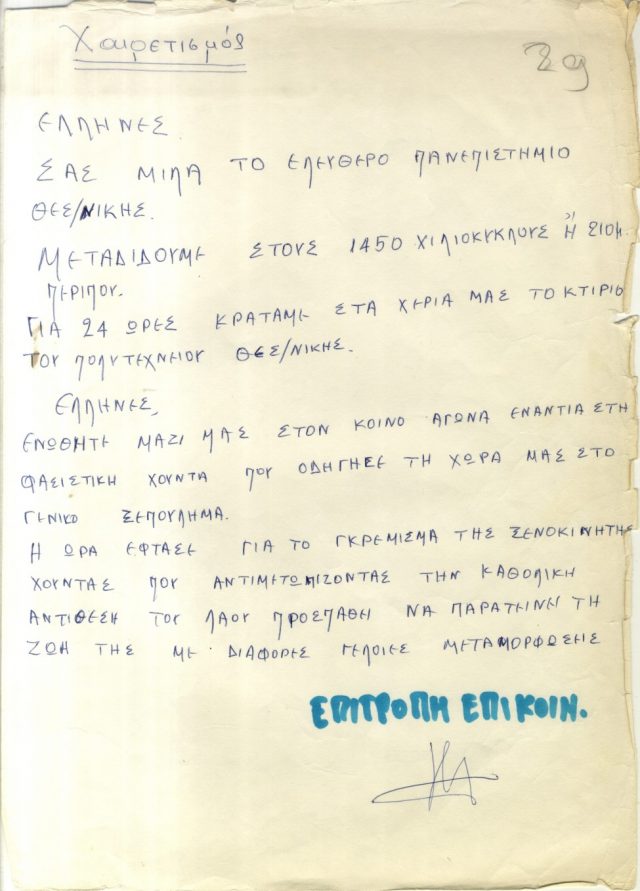 Χαιρετισμός
89
ΕΛΛΗΝΕΣ.
ΣΑΣ ΜΙΛΑ ΤΟ ΕΛΕΥΘΕΡΟ ΠΑΝΕΠΙΣΤΗΜΙΟ
ΘΕΣ/ΝΙΚΗΣ.
ΜΕΤΑΔΙΔΟΥΜΕ ΣΤΟΥΣ 1450 ΧΙΛΙΟΚΥΚΛΟΥΣ Ἤ 210μ.
ΠΕΡΙΠΟΥ.
ΓΙΑ 24 ΩΡΕΣ ΚΡΑΤΑΜΕ ΣΤΑ ΧΕΡΙΑ ΜΑΣ ΤΟ ΚΤΙΡΙΟ
ΤΟΥ ΠΟΛΥΤΕΧΝΕΙΟΥ ΘΕΣ/ΝΙΚΗΣ.
ΕΛΛΗΝΕΣ,
ΕΝΩΘΗΤΕ ΜΑΖΙ ΜΑΣ ΣΤΟΝ ΚΟΙΝΟ ΑΓΩΝΑ ΕΝΑΝΤΙΑ ΣΤΗ
ΦΑΣΙΣΤΙΚΗ ΧΟΥΝΤΑ ΠΟΥ ΟΔΗΓΗΣΕ ΤΗ ΧΩΡΑ ΜΑΣ ΣΤΟ
ΓΕΝΙΚΟ ΞΕΠΟΥΛΗΜΑ.
Η ΩΡΑ ΕΦΤΑΣΕ ΓΙΑ ΤΟ ΓΚΡΕΜΙΣΜΑ ΤΗΣ ΞΕΝΟΚΙΝΗΤΗΣ
ΧΟΥΝΤΑΣ ΠΟΥ ΑΝΤΙΜΕΤΩΠΙΖΟΝΤΑΣ ΤΗΝ ΚΑΘΟΛΙΚΗ
ΑΝΤΙΘΕΣΗ ΤΟΥ ΛΑΟΥ ΠΡΟΣΠΑΘΕΙ ΝΑ ΠΑΡΑΤΕΙΝΗ ΤΗ
ΖΩΗ ΤΗΣ ΜΕ ΔΙΑΦΟΡΕΣ ΓΕΛΟΙΕΣ ΜΕΤΑΜΟΡΦΩΣΕΙΣ
ΕΠΙΤΡΟΠΗ ΕΠΙΚΟΙΝ.